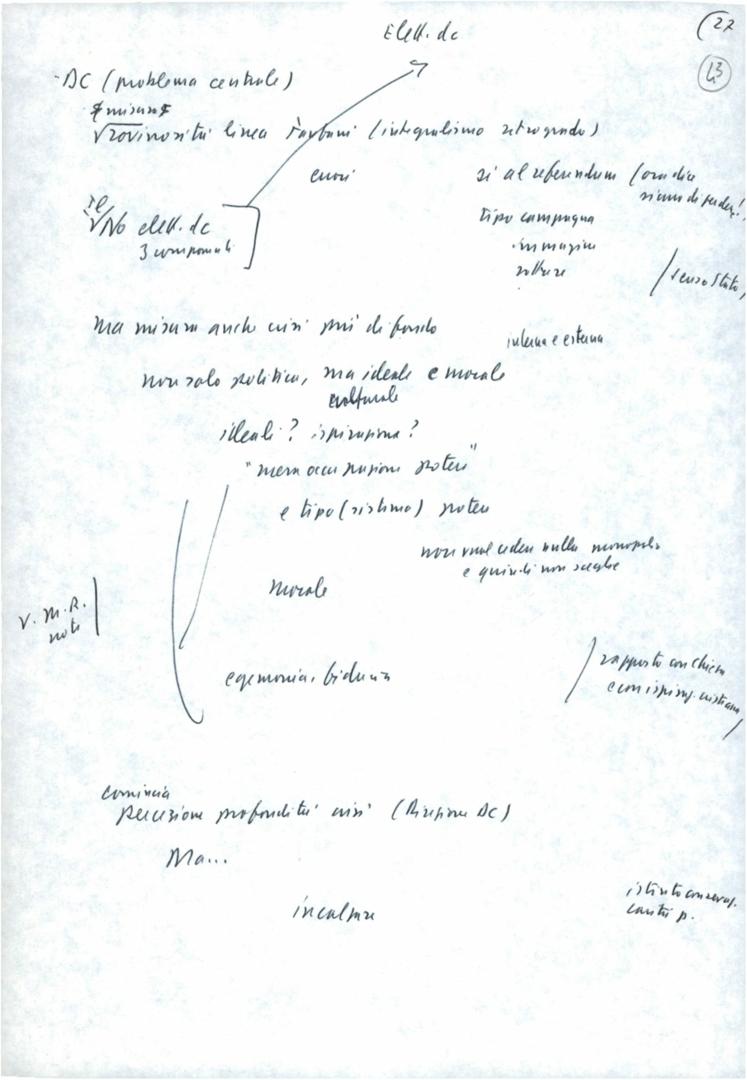 Elett. dc
(27
43
- DC (problema centrale)
misura
rovinosità linea Fanfani (integralismo retrogrado)
errori
si al referendum (ora dice
siamo di perder!)
re/
No elett. dc
3 componenti
tipo campagna
immagini
rotture
/senso Stato/
Ma misura anche crisi più di fondo
interna e esterna
non solo politica, ma ideale e morale
culturale
ideali? ispirazione?
"mera occupazione potere"
e tipo (sistema) potere
non vuol cedere nulla monopolio
e quindi non sceglie
Morale
V. M.R.
note
egemonia,
/rapporto con chiesa
e con ispiraz. cristiana/
comincia
percezione profondità crisi (Direzione DC)
Ma...
incalzare
istinto conservaz.
p.